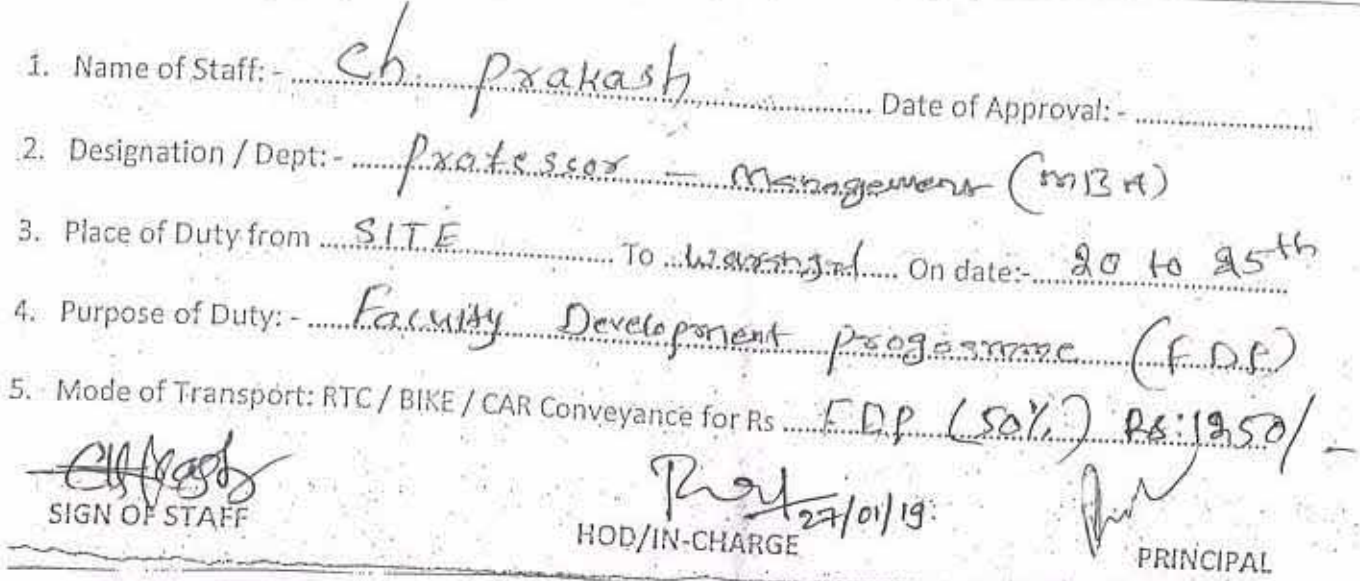 1. Name of Staff: - Ch. Prakash Date of Approval: -
2. Designation / Dept: - Professor - Management (MBA)
3. Place of Duty from SITE To Warangal On date:- 20 to 25th
4. Purpose of Duty: - Faculty Development Programme (FDP)
5. Mode of Transport: RTC / BIKE / CAR Conveyance for Rs FDP (50%) Rs: 1250/-
27/01/19
SIGN OF STAFF HOD/IN-CHARGE PRINCIPAL